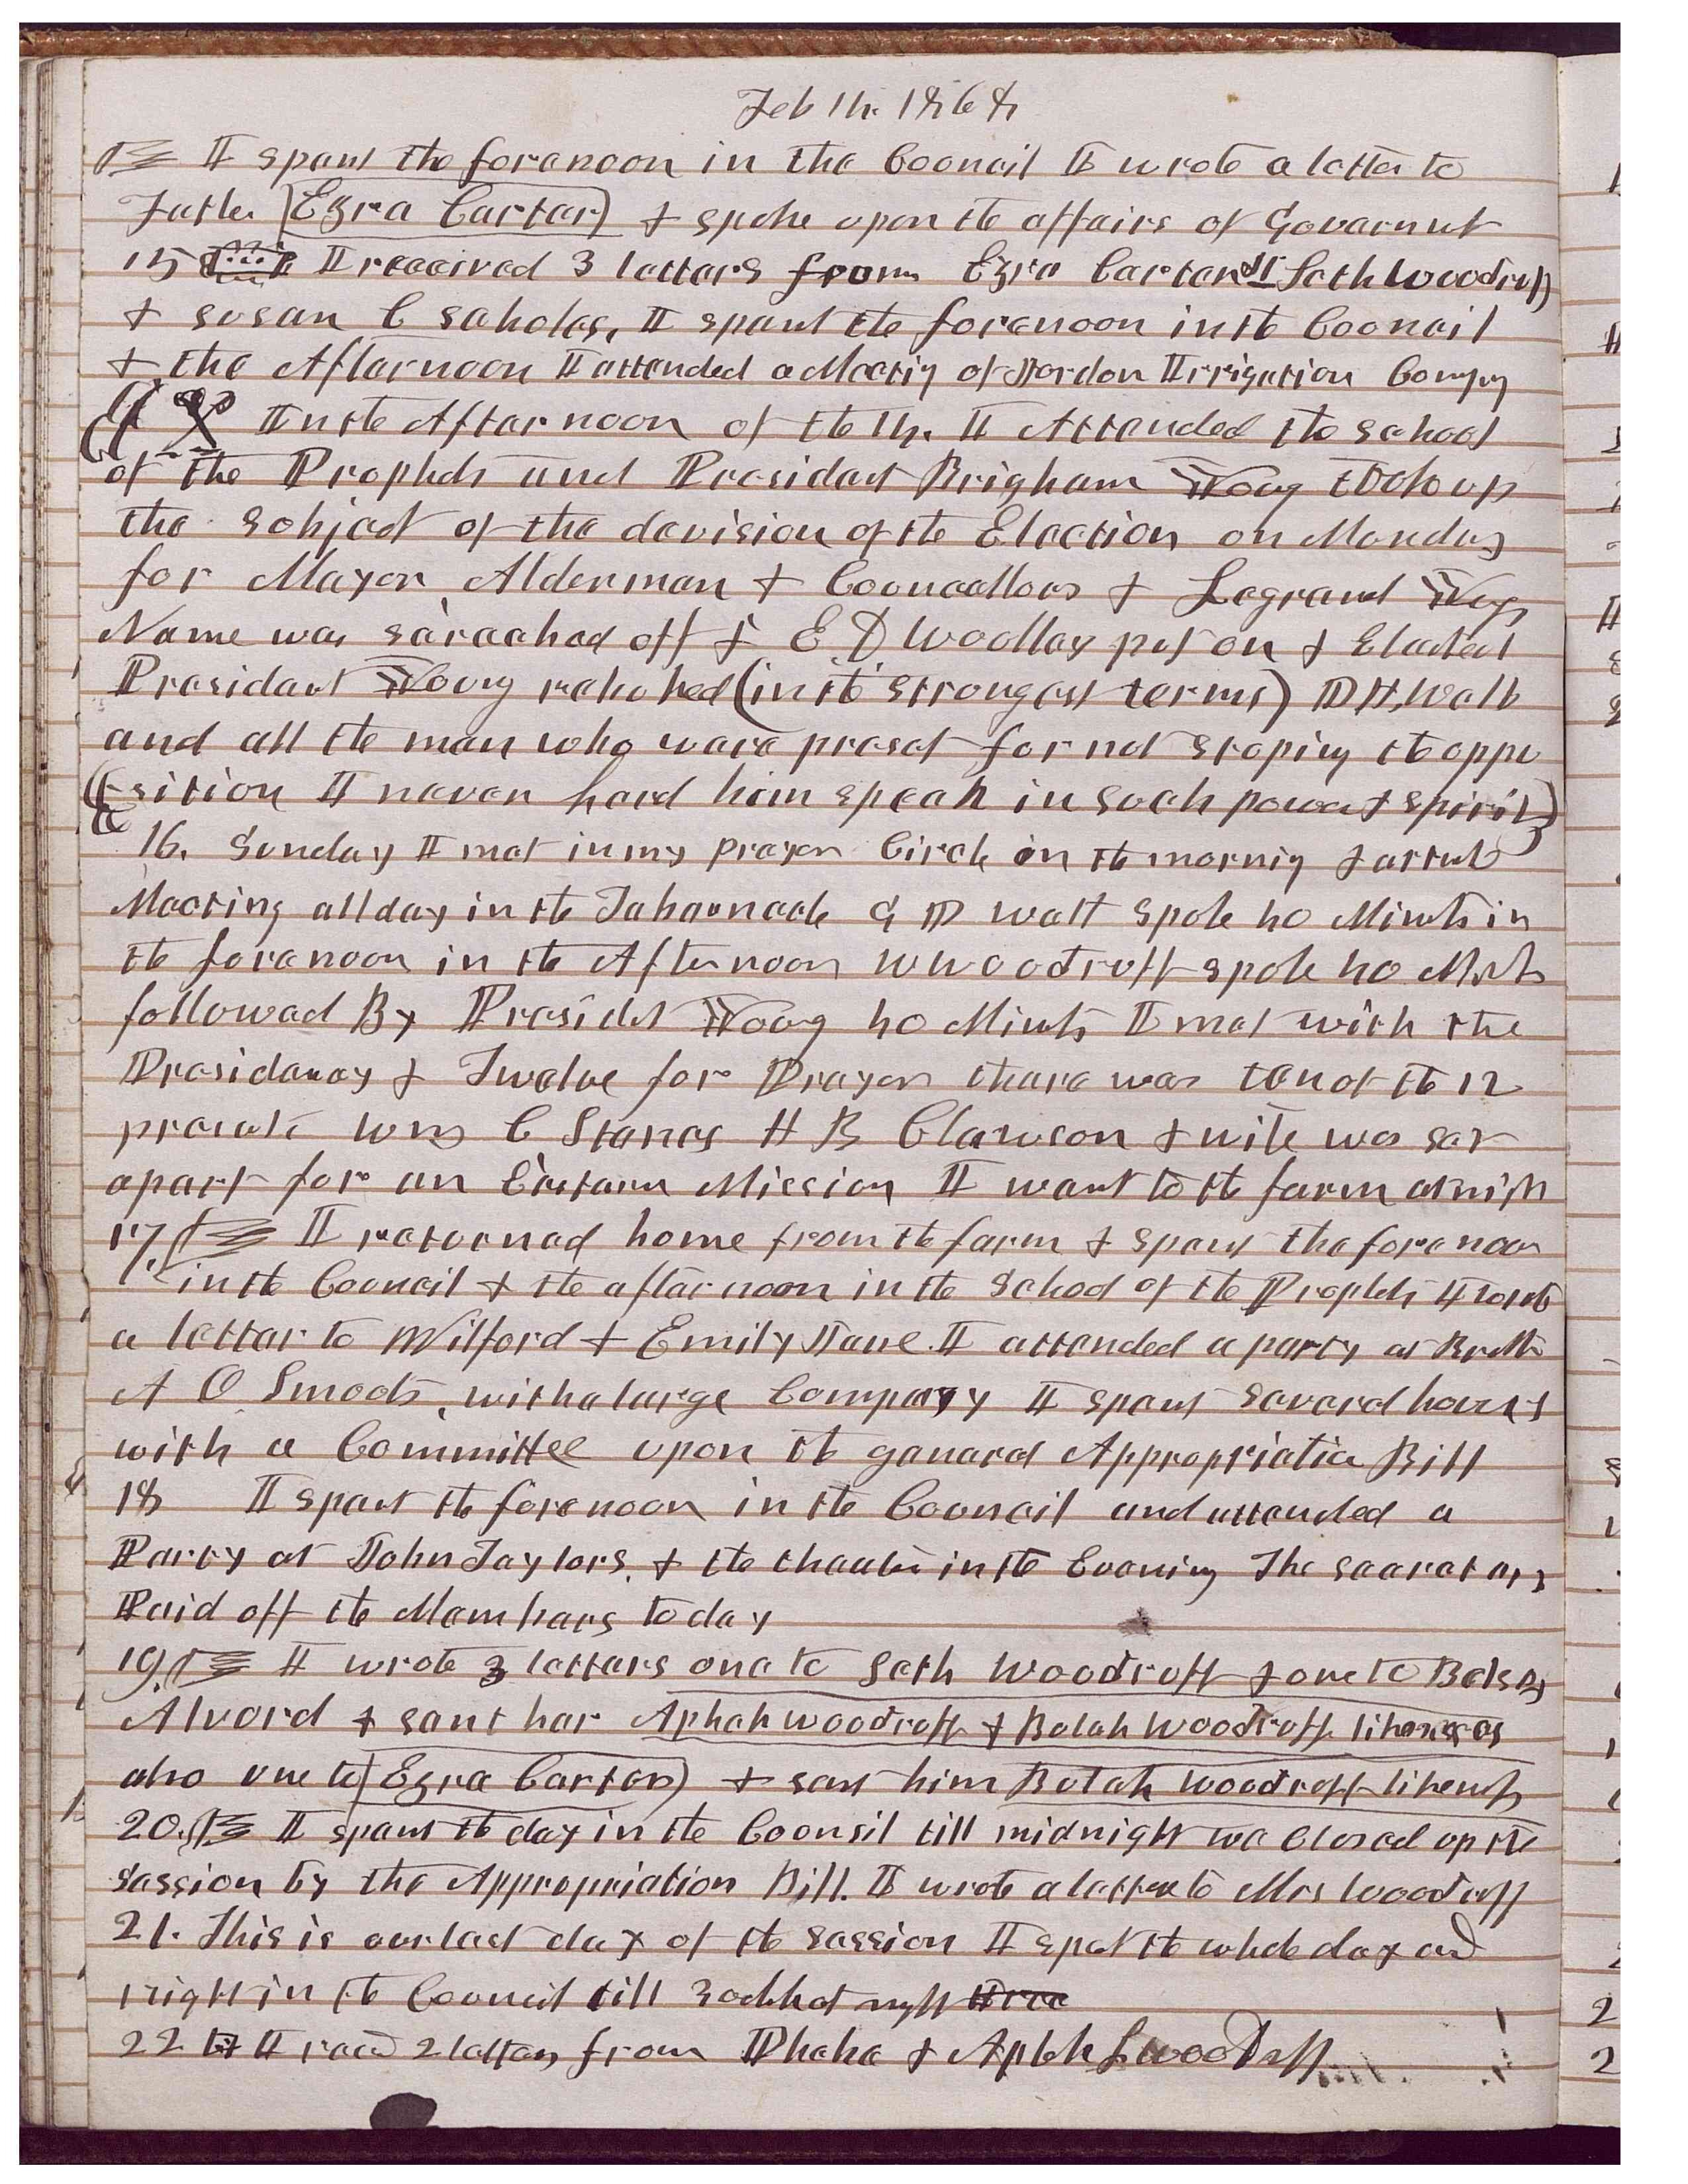 Feb 14. 1868
I spent the forenoon in the Council I wrote a letter to
Father Ezra Carter & spoke upon the affairs of Government
15 I received 3 letters from Ezra Carter Sr Seth Woodruff
& Susan C Scholes, I spent the forenoon in the Council
& the Afternoon I attended a Meeting of Jordon Irrigation Compny
In the Afternoon of the 14. I Attended the school
of the Prophets and President Brigham Young took up
the subject of the devision of the Election on Monday
for Mayor, Alderman & Councellors & Legrand Youngs
Name was scrached off & E D Woolley put on & Elected
President Young rebuked (in the strongest terms) D H, Wells
and all the men who ware present for not stoping the oppo
sition I never heard him speak in such power & spirit)
16. Sunday I met in my prayer Circle in the morning & attend
Meeting all day in the Tabernacle G D Watt spoke 40 Minuts in
the forenoon in the Afternoon W Woodruff spoke 40 Mnts
followed By Presidet Young 40 Minuts I met with the
Presidency & Twelve for Prayer there was ten of the 12
present Wm C Stanes H B Clawson & wife was set
apart for an Eastern Mission I went to the farm at night
17. I returned home from the farm & spent the forenoon
in the Council & the afternoon in the School of the Prophets I wrote
a letter to Wilford & Emily Jane. I attended a party at Brother
A O Smoots, with a large Company I spent several hours
with a Committee upon the general Appropriation Bill
18 I spent the forenoon in the Council and attended a
Party at John Taylors, & the theater in the Evening The secretary
Paid off the Members to day
19. I wrote 3 letters one to Seth Woodruff & one to Betsy
Alvord & sent her Aphek Woodruff & Bulah Woodruff likenesses
also one to Ezra Carter) & sent him Bulah Woodruff likeness
20. I spent the day in the Counsil till midnight we Closed up the
session by the Appropriation Bill. I wrote a letter to Mrs Woodruff
21. This is our last day of the session I spet the whole day and
night in the Council till 3 oclok at night
22 I recd 2 letters from Phebe & Aphek Woodruff